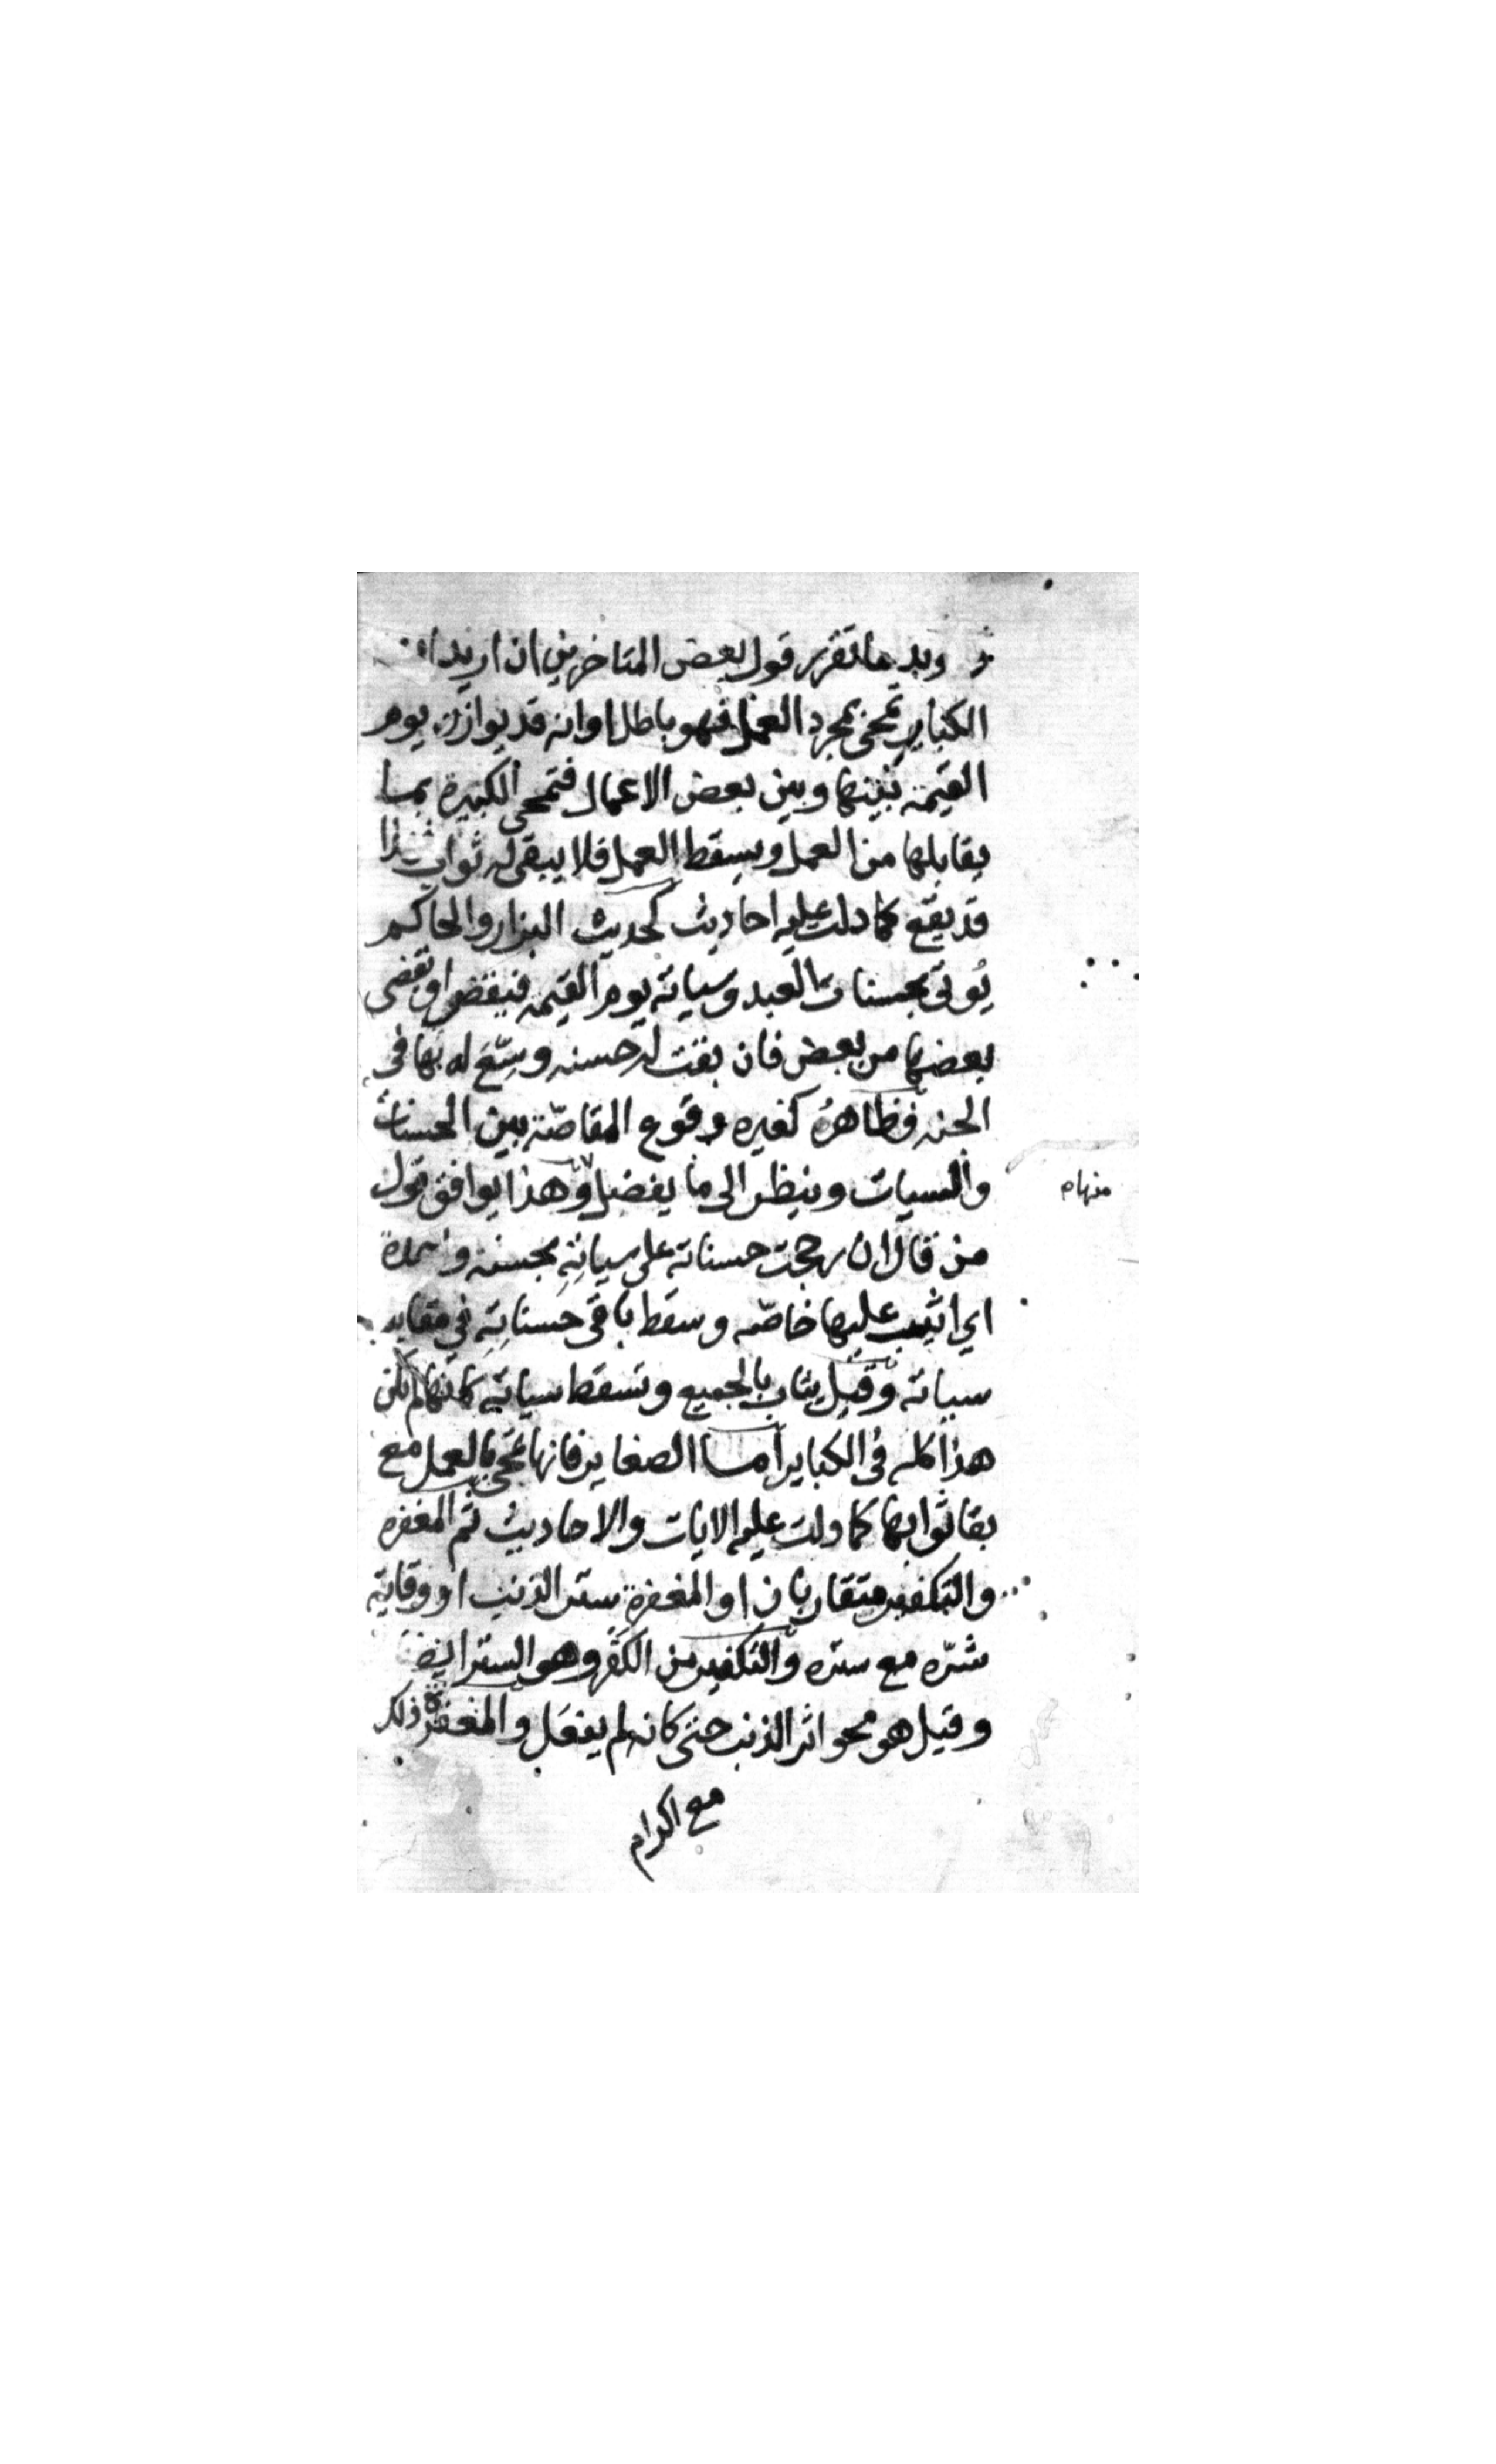 ويد ما تقرر قول بعض المتاخرين ان اريد ان
الكباير تمحى بمجرد العمل فهو باطل او انه قد يوازن يوم
القيمة بينها وبين بعض الاعمال فتمحى الكبيرة بما
يقابلها من العمل ويسقط العمل فلا يبقى له ثواب فهذا
قد يقع كما دلت عليه احاديث كحديث البزار والحاكم
يُوتى بحسنات العبد وسياته يوم القيمه فيقض او يقضى
بعضها من بعض فان بقت له حسنه وسّع له بها فى
الجنه فظاهرهُ كغيره وقوع المقاصّة بين الحسنات
والسيات وينظر الى ما يفضل وهذا يوافق قول
منهام
من قال ان رجحت حسناته على سياته بحسنة واحدة
اي اثيب عليها خاصّه وسقط باقى حسناته في مقابلة
سياته وقيل يثاب بالجميع وتسقط سياته كانها لم تكن
هذا كله فى الكباير اما الصغاير فانها تمحى بالعمل مع
بقا ثوابها كما دلت عليه الايات والاحاديث ثم المغفره
والتكفير متقاربان او المغفرة ستر الذنب او وقاية
شرّه مع ستره والتكفير من الكفر وهو الستر ايضا
وقيل هو محو اثر الذنب حتى كانه لم يفعل والمغفرة ذلك
مع اكرام